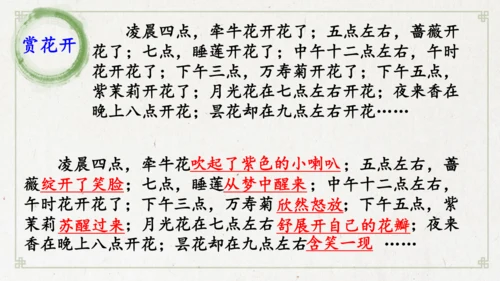 赏花开
凌晨四点，牵牛花开花了；五点左右，蔷薇开
花了；七点，睡莲开花了；中午十二点左右，午时
花开花了；下午三点，万寿菊开花了；下午五点，
紫茉莉开花了；月光花在七点左右开花；夜来香在
晚上八点开花；昙花却在九点左右开花……
凌晨四点，牵牛花吹起了紫色的小喇叭；五点左右，蔷
薇绽开了笑脸；七点，睡莲从梦中醒来；中午十二点左右，
午时花开花了；下午三点，万寿菊欣然怒放；下午五点，紫
茉莉苏醒过来；月光花在七点左右舒展开自己的花瓣；夜来
香在晚上八点开花；昙花却在九点左右含笑一现 ……